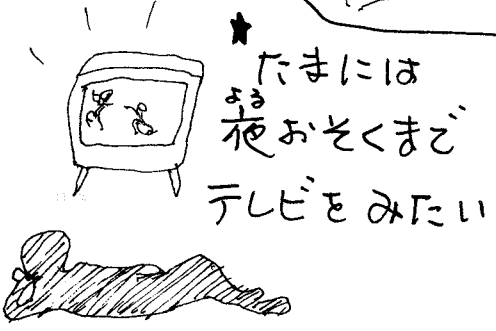 ★たまには
よる
夜おそくまで
テレビをみたい